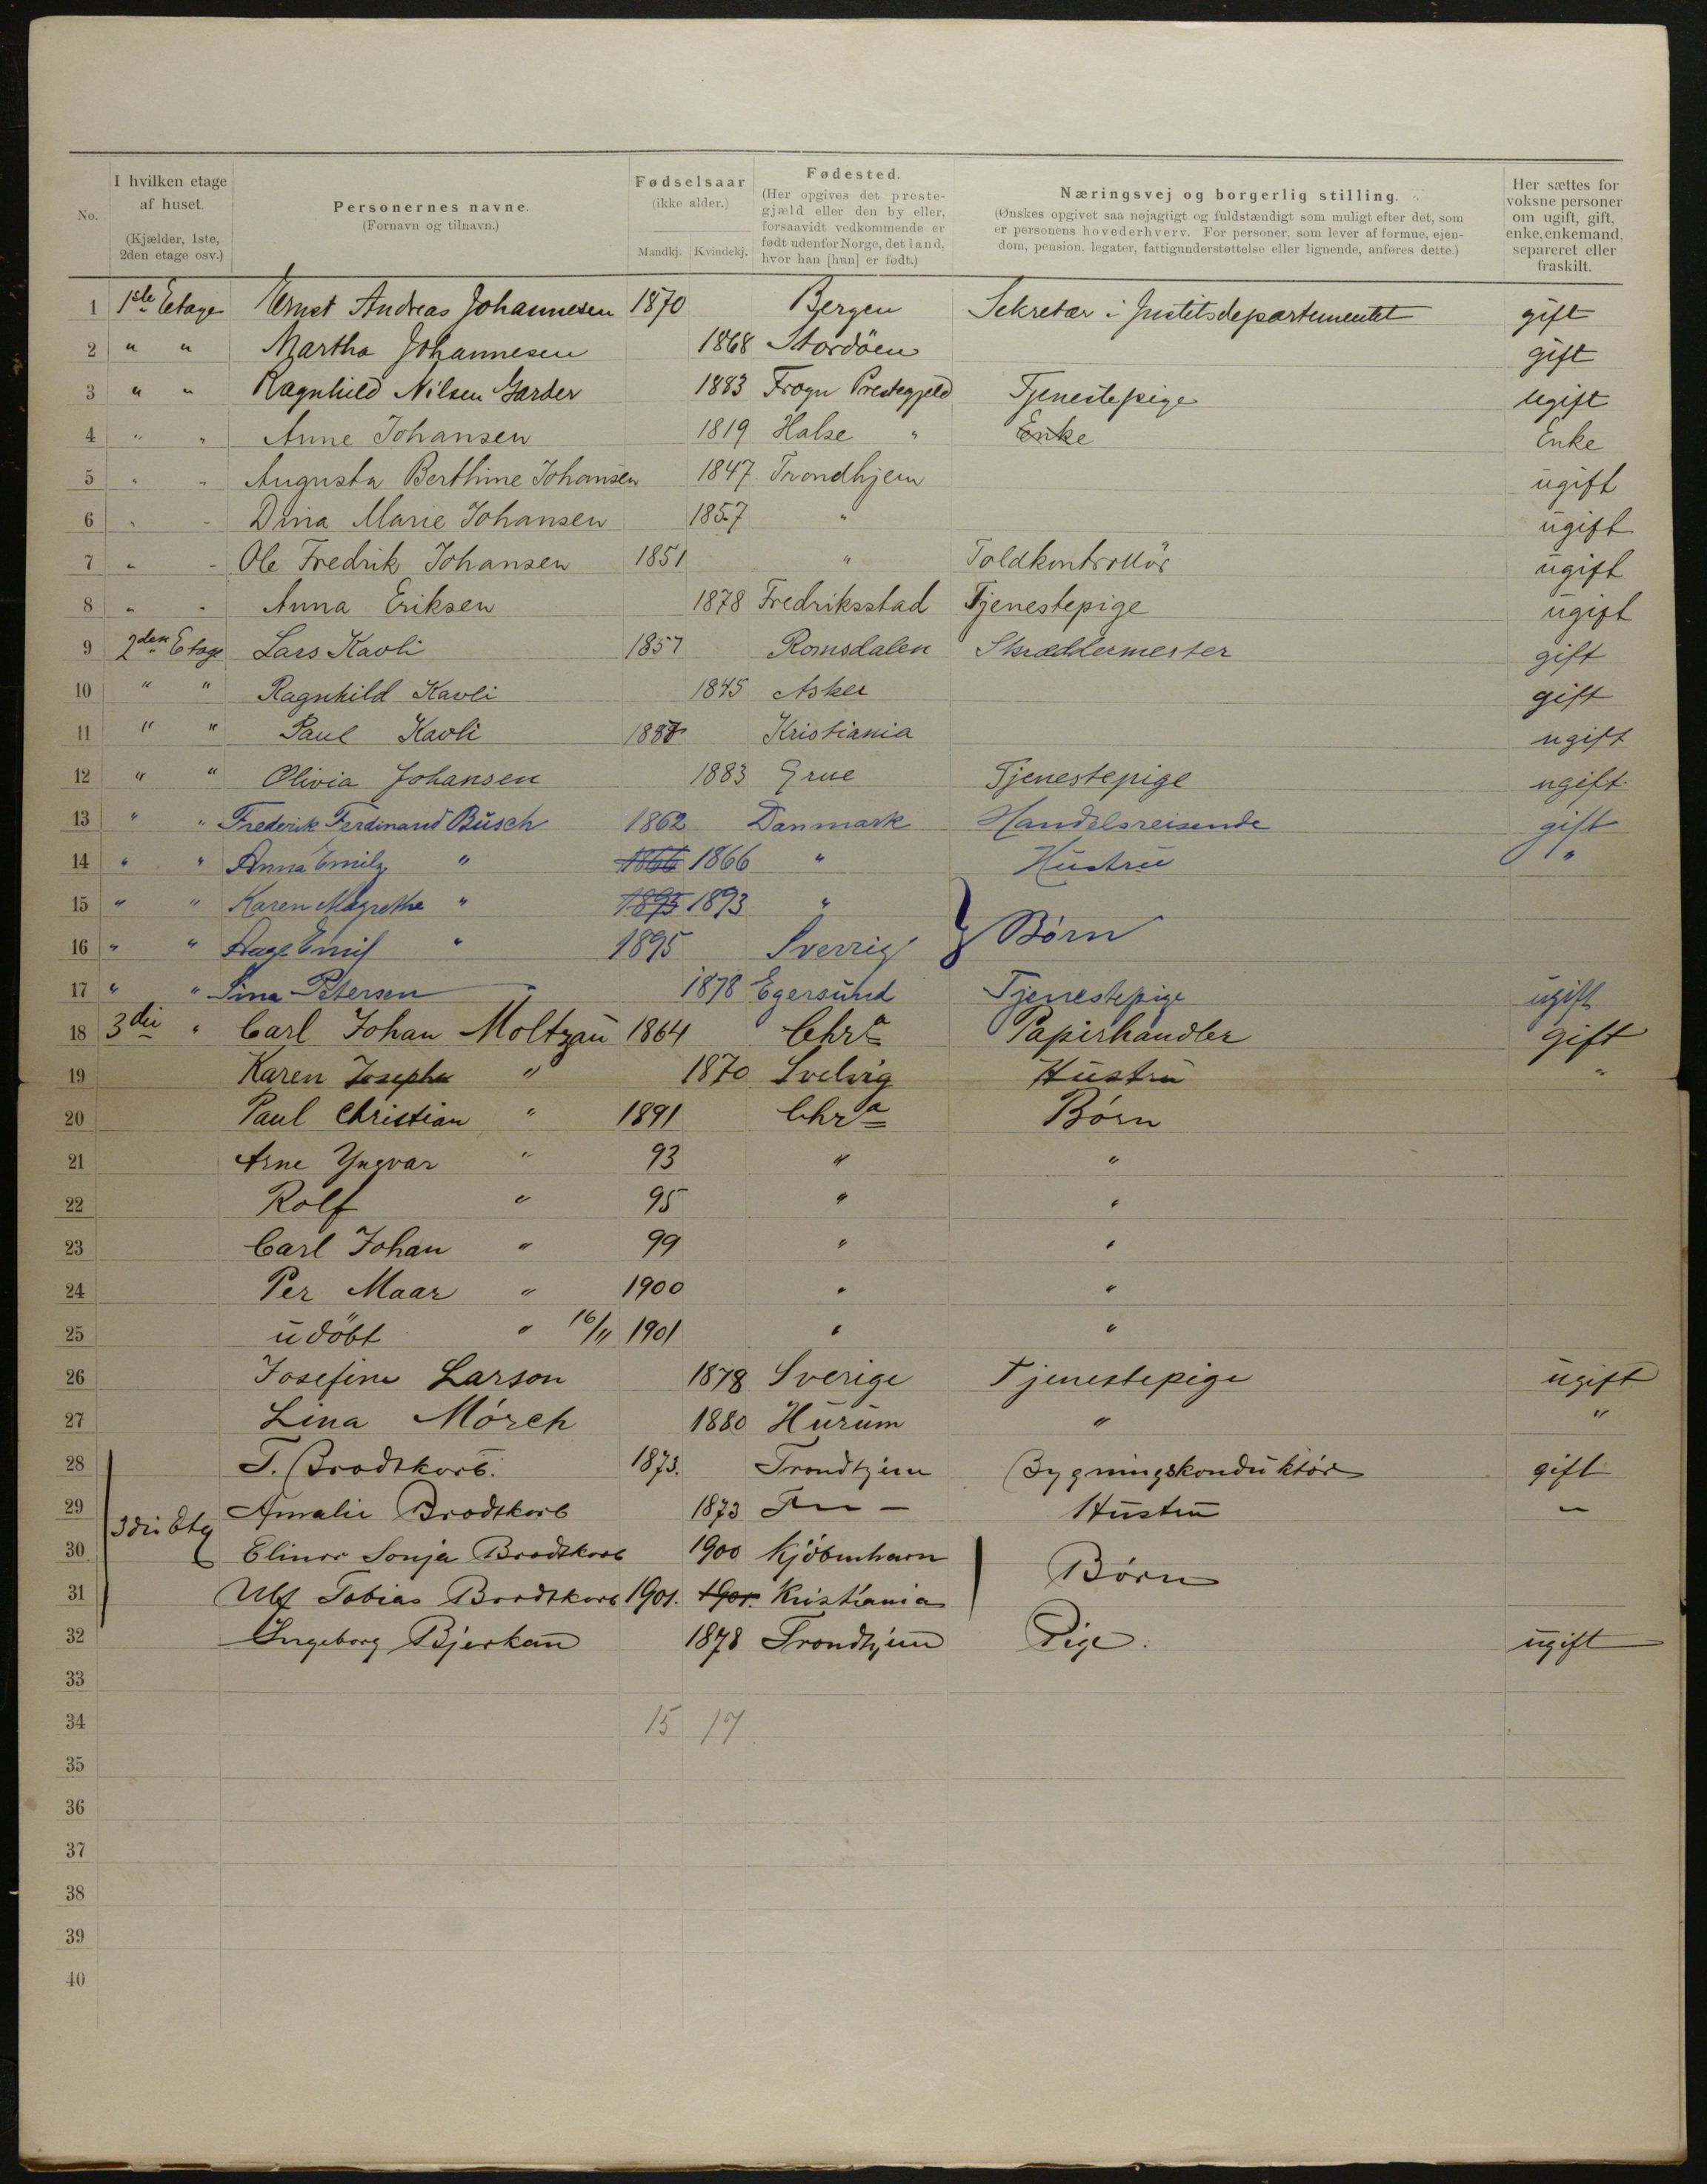 No. | I hvilken etage af huset. (Kjælder, 1ste, 2den etage osv.) | Personernes navne. (Fornavn og tilnavn.) | Fødselsaar (ikke alder.) Mandkj. Kvindekj. | Fødested. (Her opgives det prestegjæld eller den by eller, forsaavidt vedkommende er født udenfor Norge, det land, hvor han [hun] er født.) | Næringsvej og borgerlig stilling. (Ønskes opgivet saa nøjagtigt og fuldstændigt som muligt efter det, som er personens hovederhverv. For personer, som lever af formue, ejendom, pension, legater, fattigunderstøttelse eller lignende, anføres dette.) | Her sættes for voksne personer om ugift, gift, enke, enkemand, separeret eller fraskilt.
1 1ste Etage Ernst Andreas Johannesen 1870 Bergen Sekretær i Justitsdepartementet gift
2 " " Martha Johannesen 1868 Stordöen gift
3 " " Ragnhild Nilsen Garder 1883 Frogn Prestegjeld Tjenestepige ugift
4 " " Anne Johansen 1819 Halse " Enke Enke
5 " " Augusta Berthine Johansen 1847 Trondhjem ugift
6 " " Dina Marie Johansen 1857 " ugift
7 " " Ole Fredrik Johansen 1851 " Toldkontrollör ugift
8 " " Anna Eriksen 1878 Fredriksstad Tjenestepige ugift
9 2den Etage Lars Kavli 1857 Romsdalen Skræddermester gift
10 " " Ragnhild Kavli 1845 Asker gift
11 " " Paul Kavli Kristiania ugift
12 " " Olivia Johansen 1883 Grue Tjenestepige ugift
13 " " Frederik Ferdinand Busch 1862 Danmark Handelsreisende gift
14 " " Anna Emily " 1866 1866 " Hustru "
15 " " Karen Magrethe " 1893 1893 "
16 " " Aage Emil " 1895 Sverrig } Børn
17 " " Sina Petersen 1878 Egersund Tjenestepige ugift
18 3die " Carl Johan Moltzau 1864 Chra Papirhandler gift
19 Karen Josepha " 1870 Svelvig Hustru "
20 Paul Christian " 1891 Chra Børn
21 Arne Yngvar " 93 " "
22 Rolf " 95 " "
23 Carl Johan " 99 " "
24 Per Maar " 1900 " "
25 udöbt " 16/11 1901 " "
26 Josefine Larson 1878 Sverige Tjenestepige ugift
27 Lina Mórch 1880 Hurum " "
28 T. Brodtkorb. 1873. Trondhjem Bygningskonduktör gift
29 3die Etg Amalie Brodtkorb 1873 Hustru "
30 Elinor Sonja Brodtkorb 1900 Kjöbenhavn
31 Ulf Tobias Brodtkorb 1901. 1901. Kristiania Börn
32 Ingeborg Bjerkan 1878 Trondhjem Pige. ugift
33
34 15 17
35
36
37
38
39
40